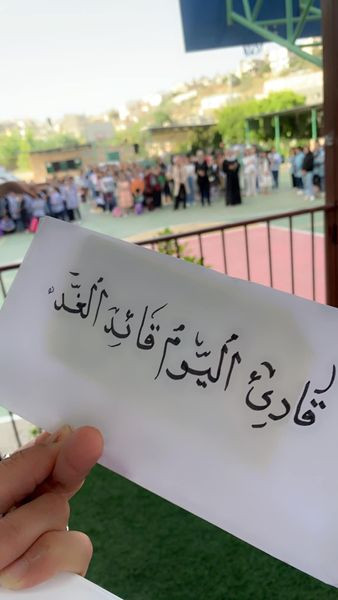 قَارِئُ ٱليَّومُ قَائِدِ ٱلغَّدْ